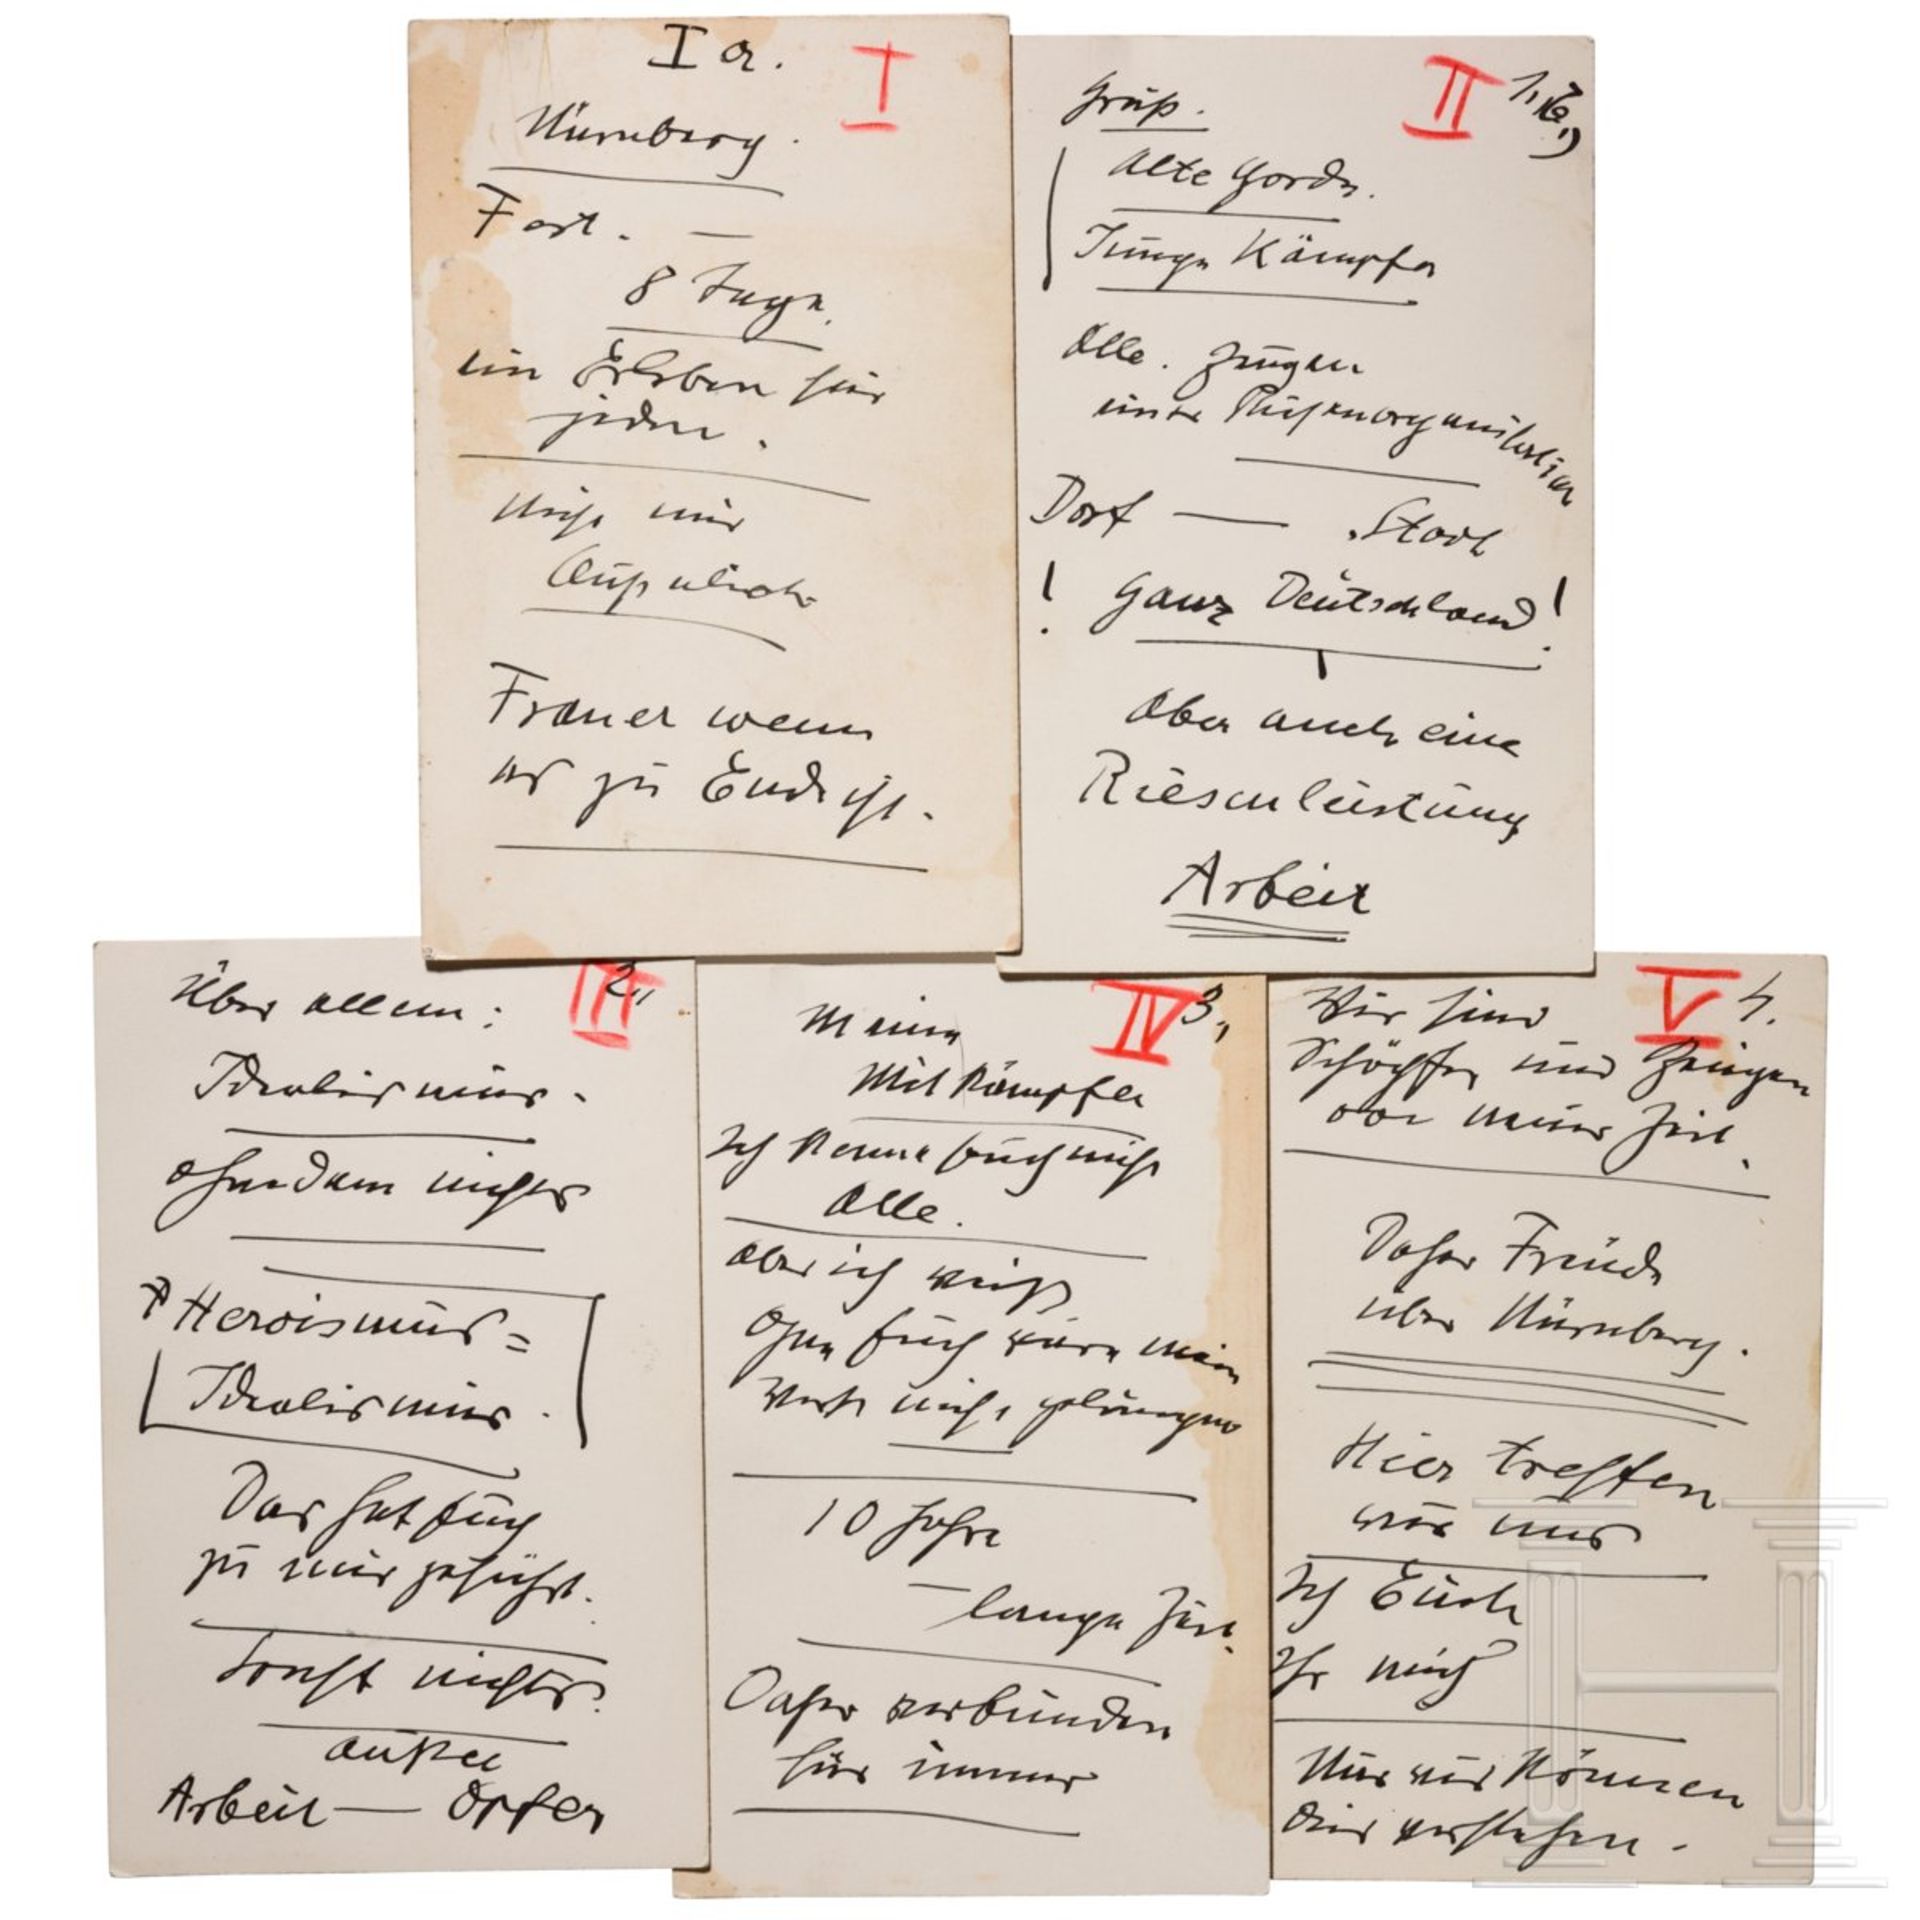 I a. I
Nürnberg.
Fast. —
8 Tage.
ein Erleben für
jeden.
Nicht nur
Äusserlich
Trauer wenn
es zu Ende ist.
II
Gruß.
Alte Garde.
Junge Kämpfer
Alle. Zeugen
einer Riesenorganisation
Dorf — Stadt
! Ganz Deutschland!
Aber auch eine
Riesenleistung
Arbeit
III 2,,
Über allem:
Idealismus.
ohne dem nichts
Heroismus =
Idealismus.
Das hat Euch
zu mir geführt.
Sonst nichts.
außer
Arbeit — Opfer
IV 3,,
Meine
Mitkämpfer
Ich kenne Euch nicht
Alle.
Aber ich weiß
Ohne Euch wäre mein
Werk nicht gelungen
10 Jahre
— lange Zeit.
Daher verbunden
für immer
V 4.
Wir sind
Schöpfer und Zeugen
einer Zeit.
Daher Freude
über Nürnberg.
Hier treffen
wir uns
Ich Euch
Ihr mich
Nur wir können
dies verstehen.